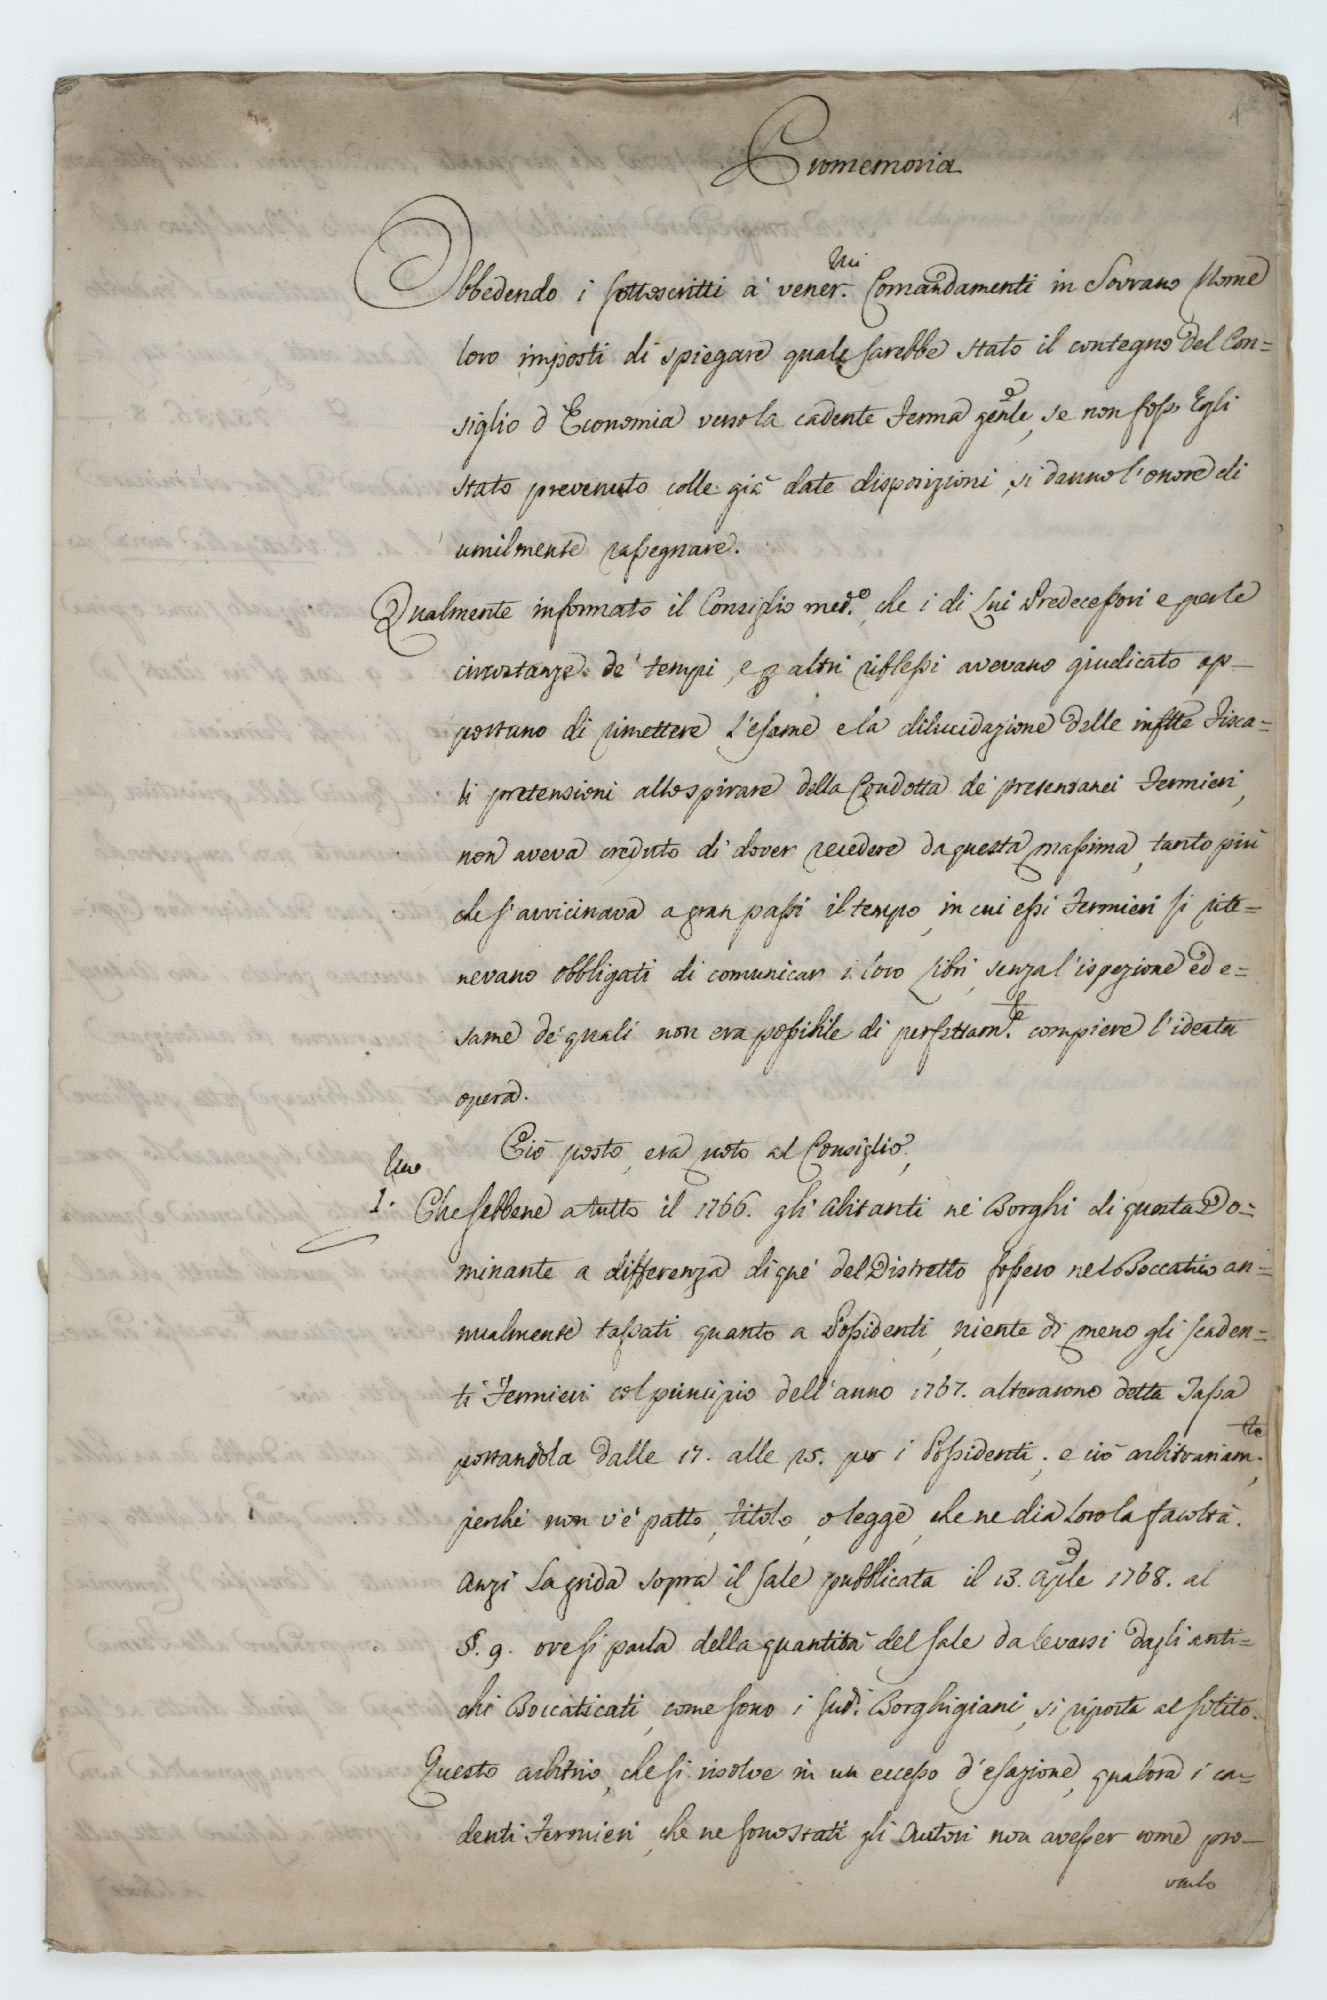 Promemoria
Obbedendo i sottoscritti a' vener.mi Comandamenti in Sovrano Nome
loro imposti di spiegare quale sarebbe stato il contegno del Con=
siglio d'Economia verso la cadente Ferma gen͠le, se non fosse Egli
stato prevenuto colle già date disposizioni, si danno l'onore di
umilmente rassegnare.
Qualmente informato il Consiglio med.o, che i di Lui Predecessori e per le
circostanze de' tempi, e altri riflessi avevano giudicato op-
portuno di rimettere l'esame e la dilucidazione delle infrtte Fisca=
li pretensioni allo spirare della Condotta de' presentanei Fermieri,
non aveva creduto di dover recedere da questa massima, tanto più
che s'avvicinava a gran passi il tempo, in cui essi Fermieri si rite=
nevano obbligati di comunicar i loro Libri, senza l'ispezione ed e=
same de' quali non era possibile di perfettam.te compiere l'ideata
opera.
Ciò posto, era noto al Consiglio,
1.mo Che sebbene a tutto il 1766. gli abitanti ne' Borghi di questa Do=
minante a differenza di que' del Distretto fossero nel Boccatico an=
nualmente tassati quanto a Possidenti, niente di meno gli scaden=
ti Fermieri col principio dell'anno 1767. alterarono detta Tassa
portandola dalle 17. alle 25. per i Possidenti; e ciò arbitrariam.te,
perché non v'è patto, titolo, o legge, che ne dia Loro la facoltà.
Anzi La grida sopra il sale pubblicata il 13. Aple 1768. al
§. 9. ove si parla della quantità del sale da levarsi dagli anti=
chi Boccaticati, come sono i sud.i Borghigiani, si riporta al solito.
Questo arbitrio, che si risolve in un eccesso d'esazione, qualora i ca=
denti Fermieri, che ne sono stati gli Autori non avesser come pro-
varlo